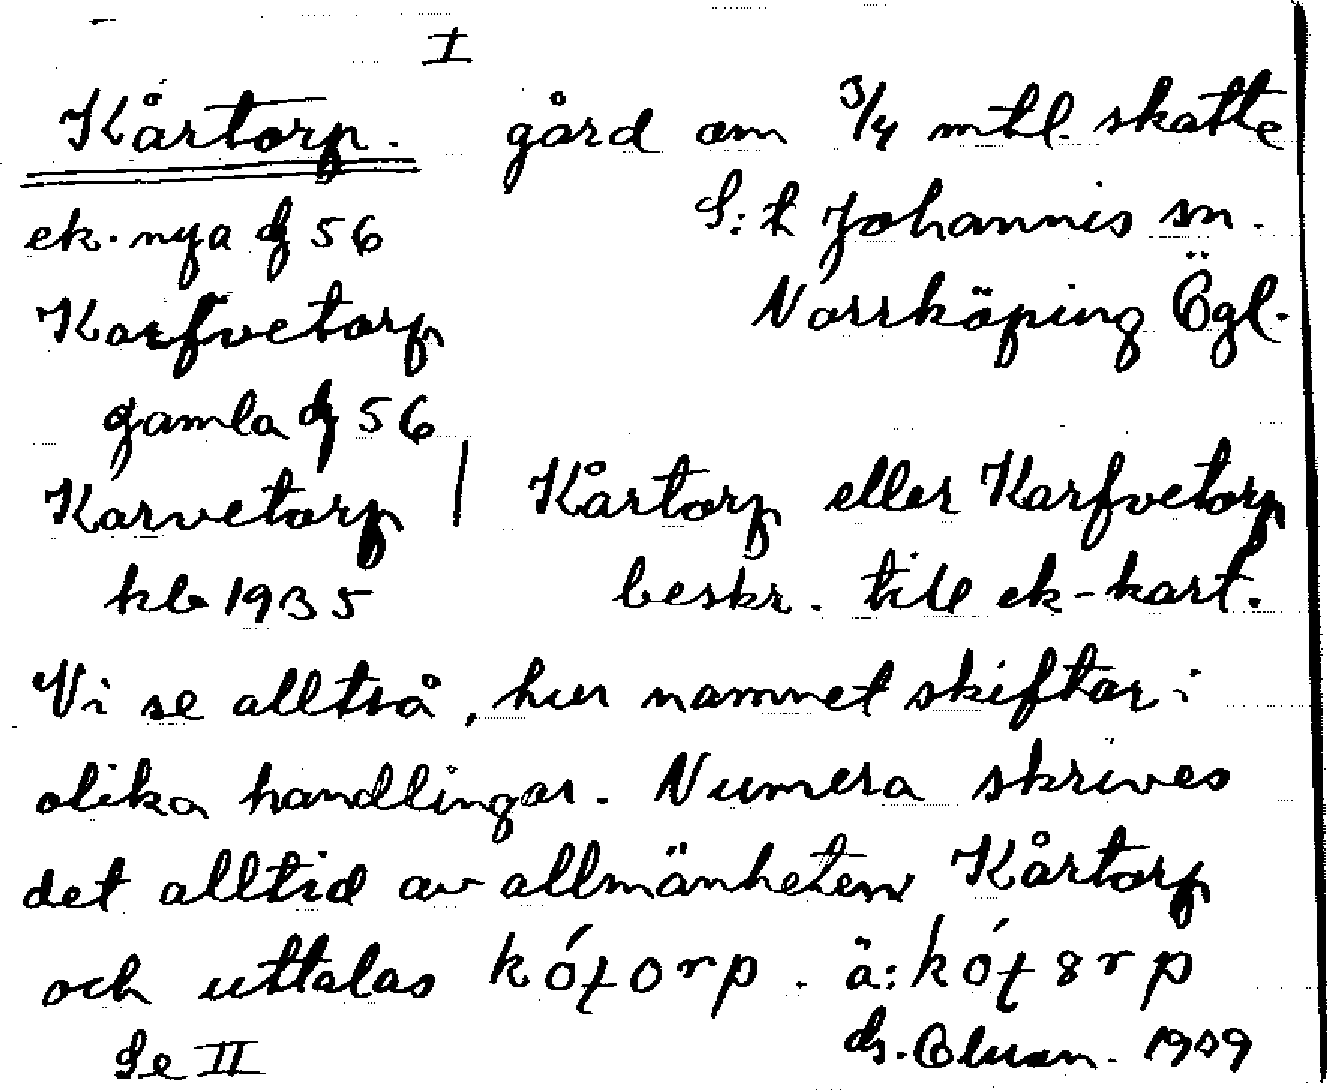 I
Kårtorp. gård om 3/4 mtl. skatte
ek. nya dz 56 S:t Johannis sn.
Karfvetorp Norrköping Ögl.
gamla dz 56
Karvetorp | Kårtorp eller Karfvetorp
hb 1935 beskr. till ek-kart.
Vi se alltså, hur namnet skiftar i
olika handlingar. Numera skrives
det alltid av allmänheten Kårtorp
och uttalas
Se II 1939